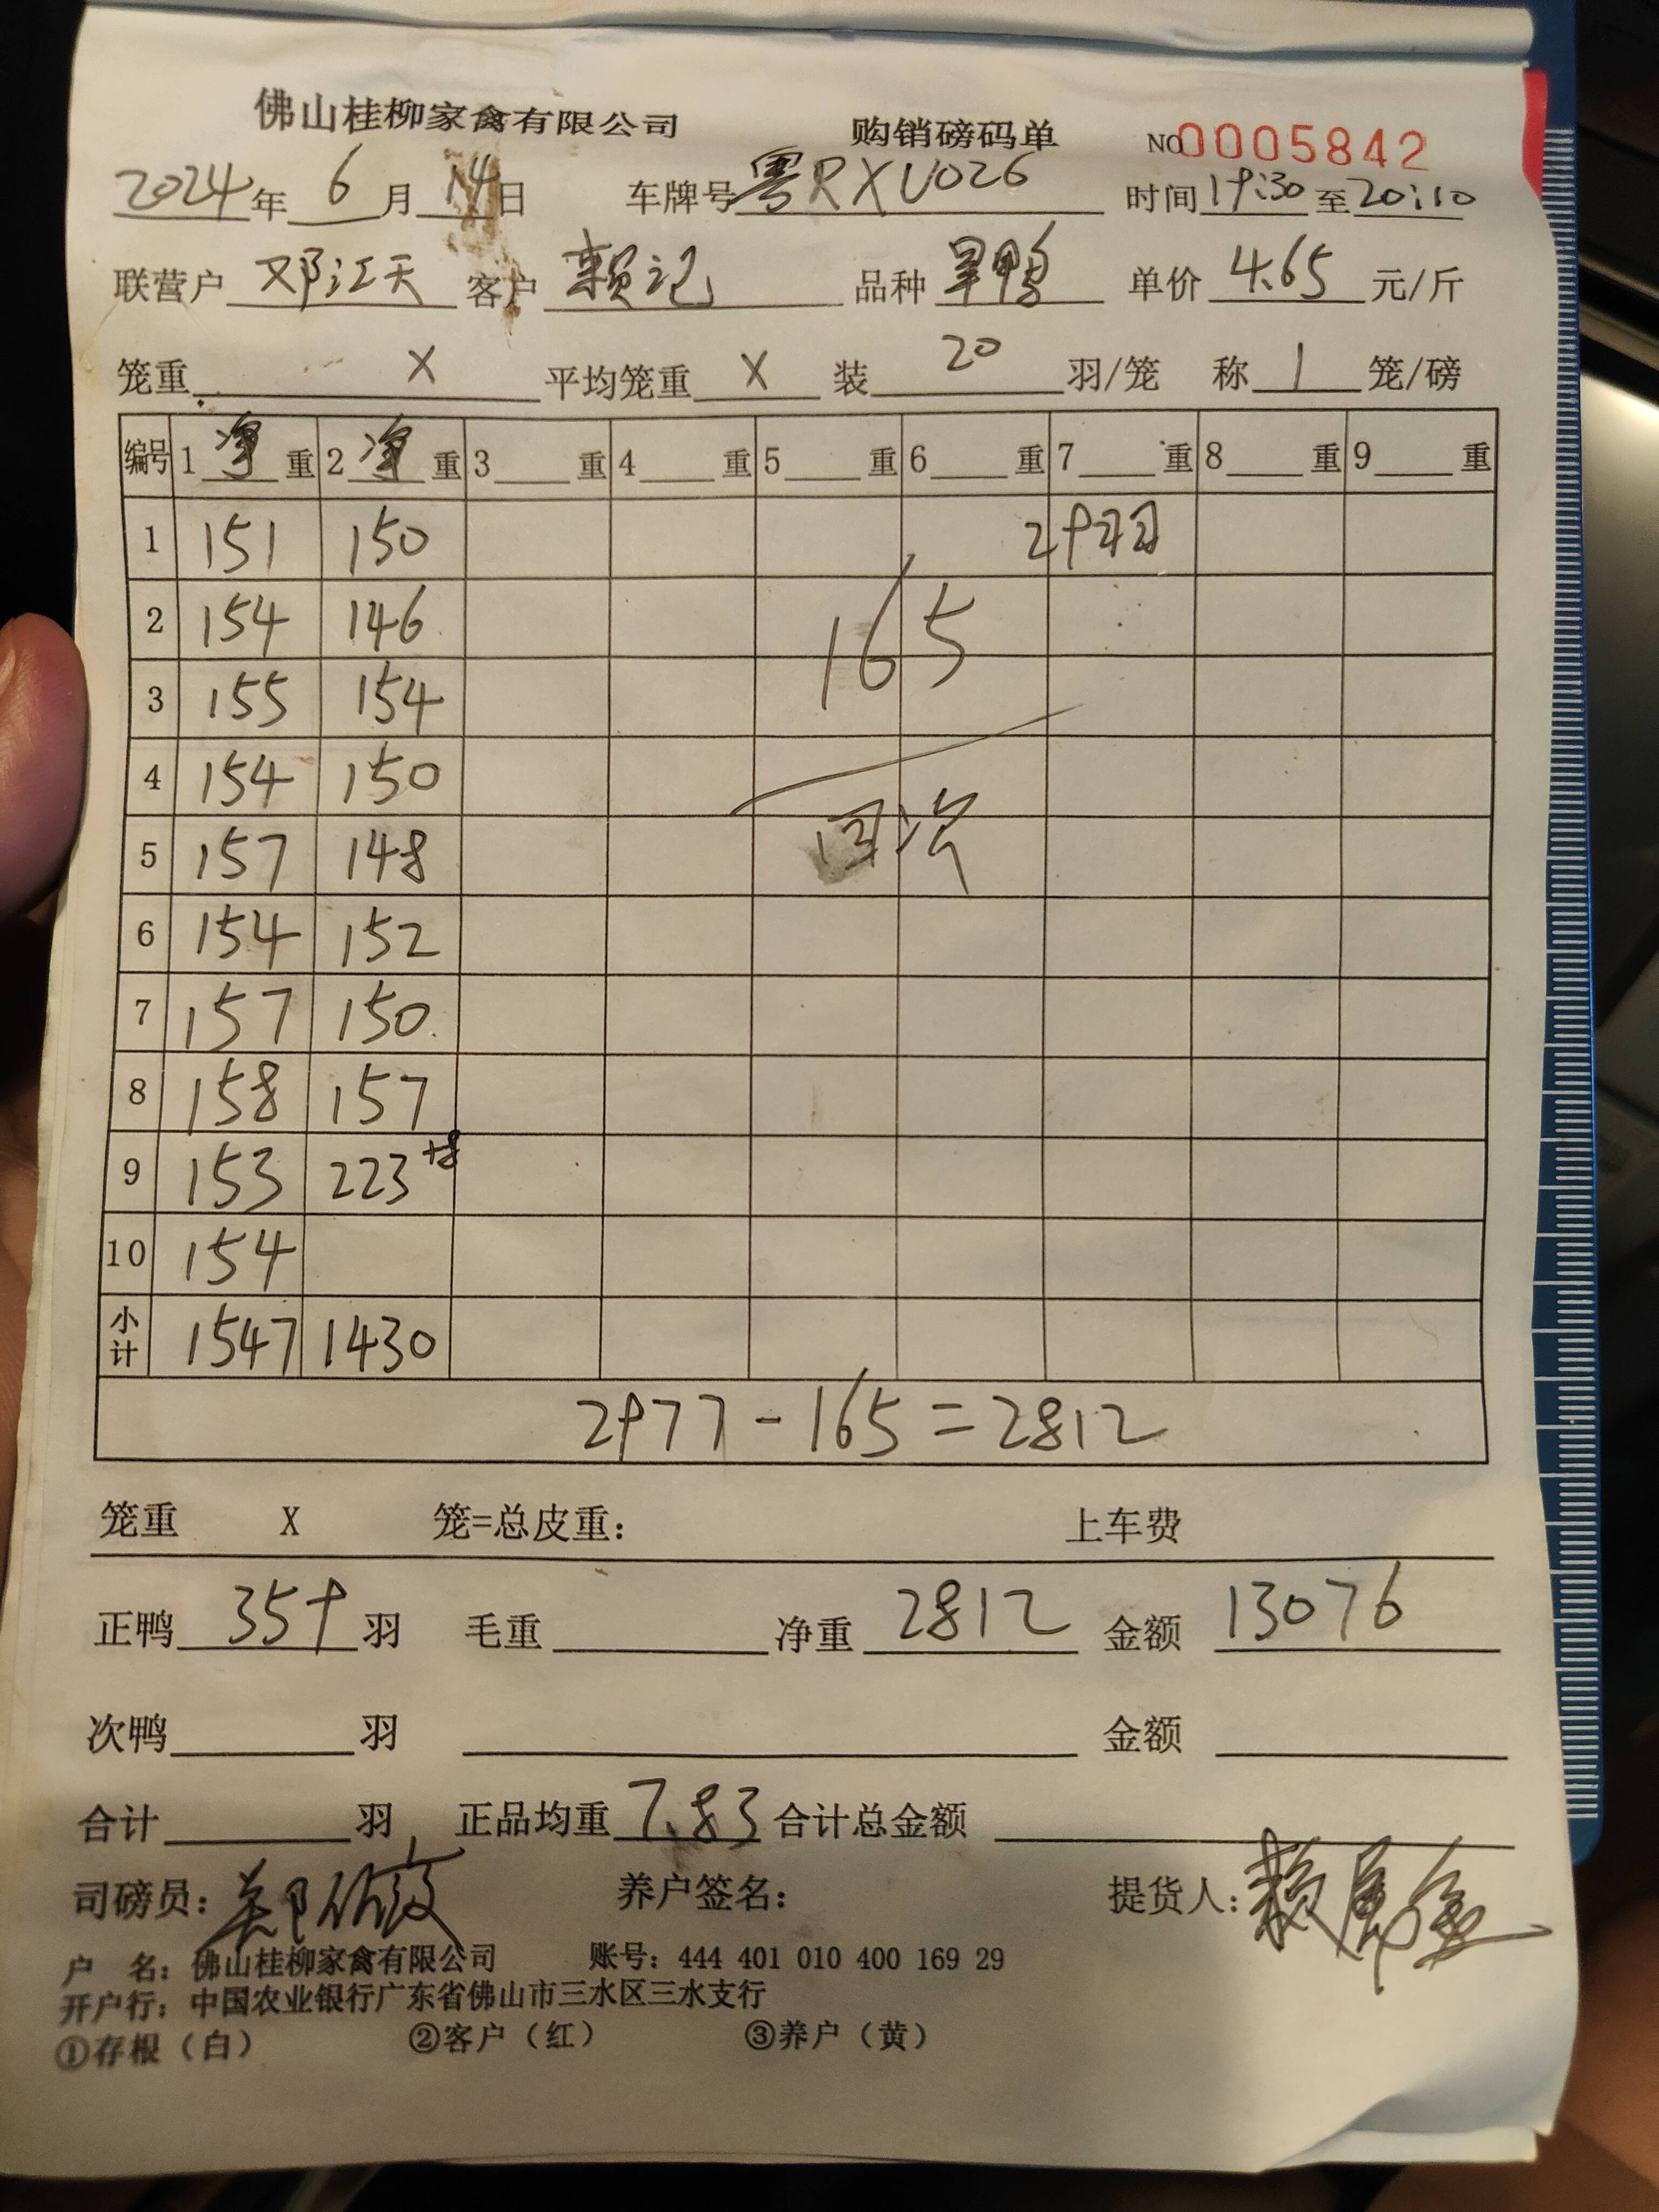 佛山桂柳家禽有限公司 购销磅码单 NO0005842
2024年6月14日 车牌号粤RXU026 时间19:30至20:10
联营户 邓江天 客户 赖记 品种 旱鸭 单价 4.65 元/斤
笼重 X 平均笼重 X 装 20 羽/笼 称 1 笼/磅
编号 1 净 重 2 净 重 3 重 4 重 5 重 6 重 7 重 8 重 9 重
1 151 150 29羽
2 154 146 165
3 155 154
4 154 150
5 157 148 回次
6 154 152
7 157 150
8 158 157
9 153 223+8
10 154
小计 1547 1430
2977-165=2812
笼重 X 笼=总皮重: 上车费
正鸭 359 羽 毛重 净重 2812 金额 13076
次鸭 羽 金额
合计 羽 正品均重 7.83 合计总金额
司磅员: 养户签名: 提货人:
户 名: 佛山桂柳家禽有限公司 账号: 444 401 010 400 169 29
开户行: 中国农业银行广东省佛山市三水区三水支行
①存根(白) ②客户(红) ③养户(黄)